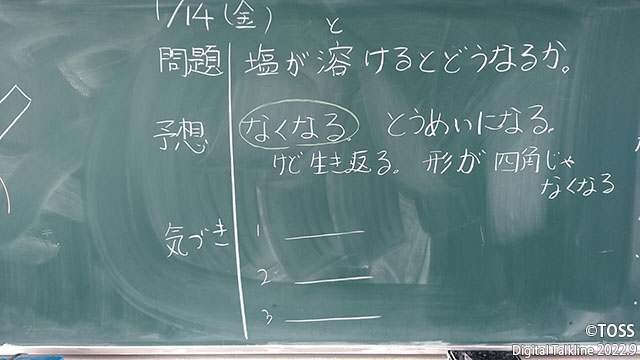 1/14(金)
と
問題 塩が溶けるとどうなるか。
予想 なくなる。 とうめいになる。
けど生き返る。 形が四角じゃ
なくなる
気づき 1
2
3
©TOSS
Digital Talkline 2022.9